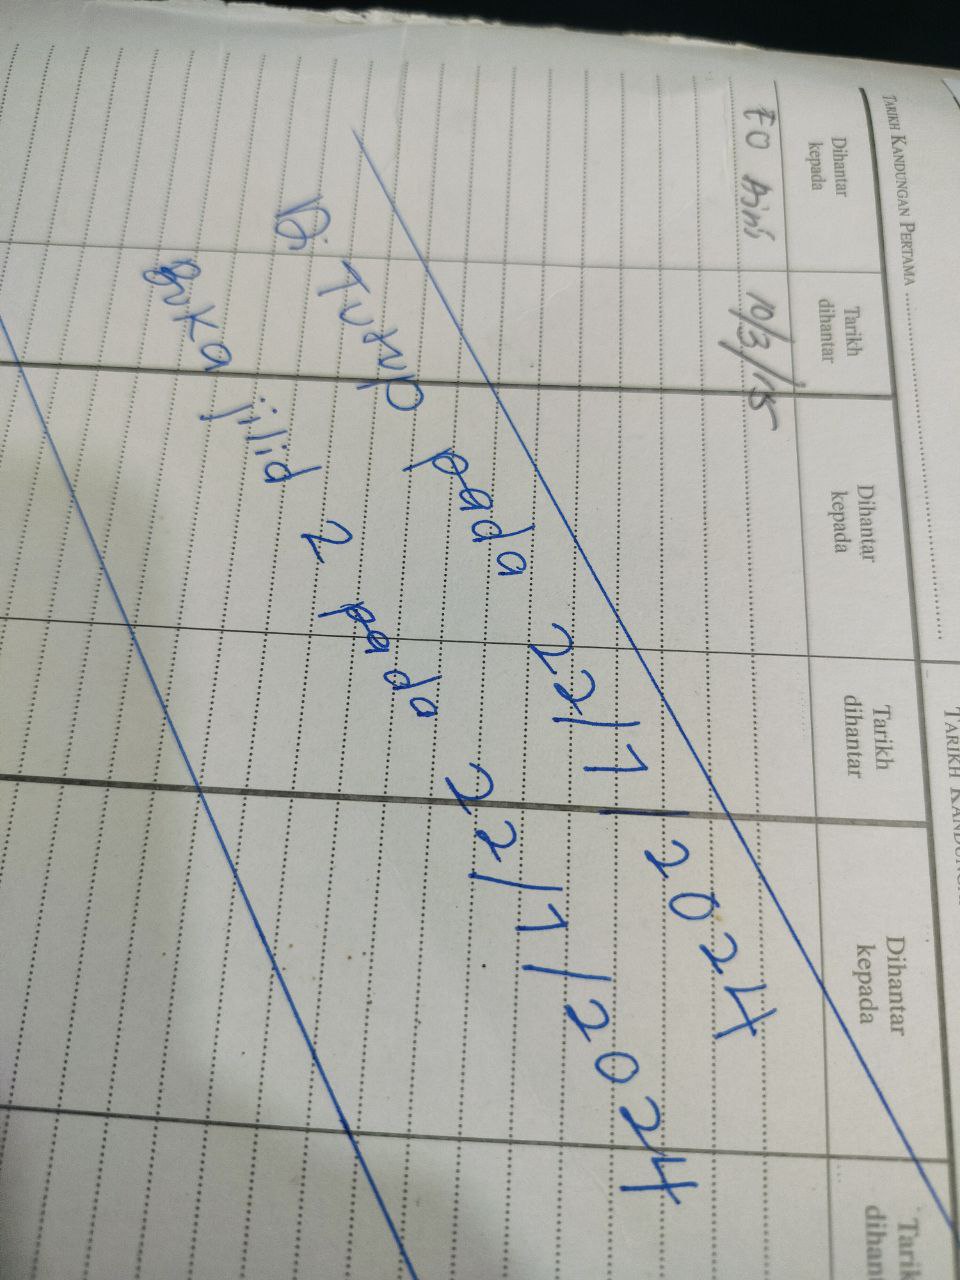 TARIKH KANDUNGAN PERTAMA
TARIKH
Dihantar kepada
Tarikh dihantar
Dihantar kepada
Tarikh dihantar
Dihantar kepada
10/3/15
Di Tutup pada 22/1/2024
Buka jilid 2 pada 22/1/2024